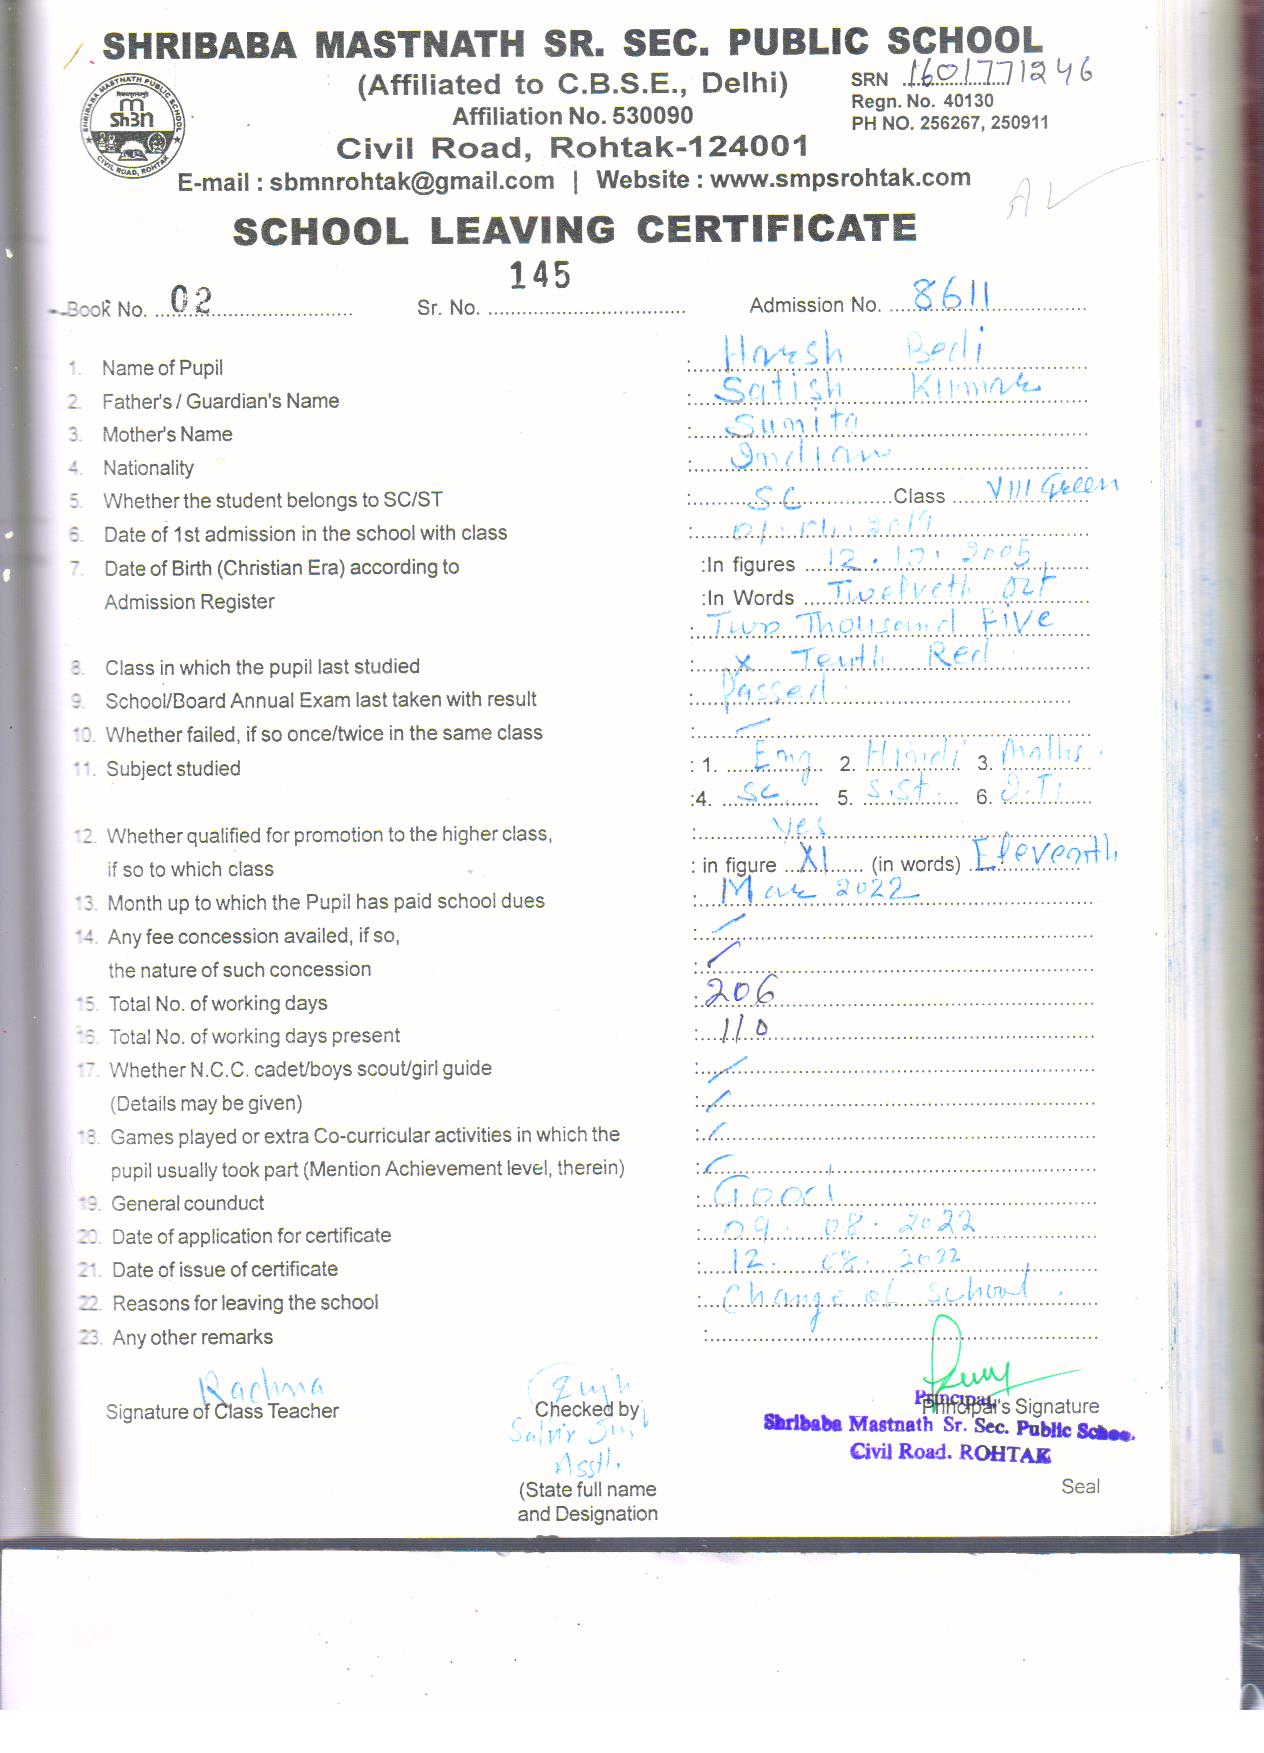 SHRIBABA MASTNATH SR. SEC. PUBLIC SCHOOL
(Affiliated to C.B.S.E., Delhi)
SRN 1601771246
Affiliation No. 530090
Regn. No. 40130
PH NO. 256267, 250911
Civil Road, Rohtak-124001
E-mail : sbmnrohtak@gmail.com | Website : www.smpsrohtak.com
SCHOOL LEAVING CERTIFICATE
145
Book No. 02 Sr. No. Admission No. 8611
1. Name of Pupil : Harsh Bedi
2. Father's / Guardian's Name : Satish Kumar
3. Mother's Name : Sumita
4. Nationality : Indian
5. Whether the student belongs to SC/ST : SC Class VIII Green
6. Date of 1st admission in the school with class
7. Date of Birth (Christian Era) according to :In figures 12. 10. 2005
Admission Register :In Words Twelveth Oct
: Two Thousand Five
8. Class in which the pupil last studied : X Tenth Red
9. School/Board Annual Exam last taken with result : Passed
10. Whether failed, if so once/twice in the same class : —
11. Subject studied : 1. Eng 2. Hindi 3. Maths
:4. SC. 5. S.St. 6. I.T.
12. Whether qualified for promotion to the higher class, : Yes
if so to which class : in figure XI (in words) Eleventh
13. Month up to which the Pupil has paid school dues : Mar 2022
14. Any fee concession availed, if so, : /
the nature of such concession : /
15. Total No. of working days : 206
16. Total No. of working days present : 110
17. Whether N.C.C. cadet/boys scout/girl guide : /
(Details may be given) : /
18. Games played or extra Co-curricular activities in which the : /
pupil usually took part (Mention Achievement level, therein) : /
19. General counduct : Good
20. Date of application for certificate : 09. 08. 2022
21. Date of issue of certificate : 12. 08. 2022
22. Reasons for leaving the school : Change of school.
23. Any other remarks :
Rachna
Signature of Class Teacher Checked by Principal's Signature
Principal
Shribaba Mastnath Sr. Sec. Public School
Civil Road. ROHTAK
Asstt.
(State full name Seal
and Designation